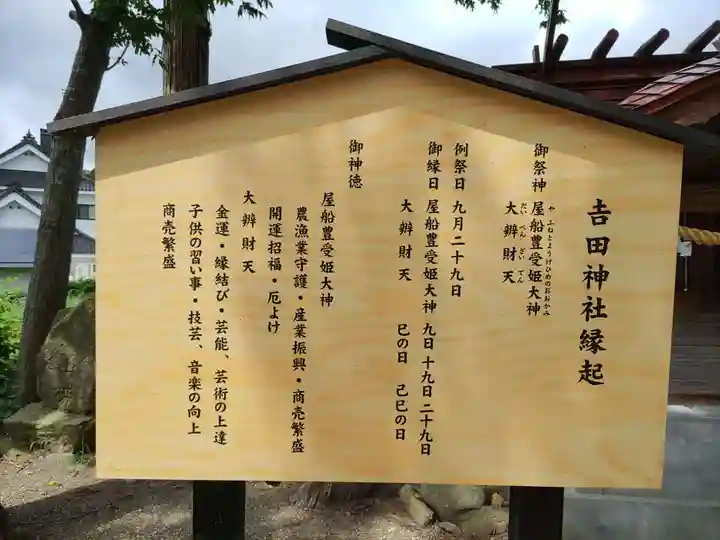 𠮷田神社縁起
御祭神 屋船豊受姫大神
やふねとようけひめのおおかみ
大辨財天
だいべんざいてん
例祭日 九月二十九日
御縁日 屋船豊受姫大神 九日 十九日 二十九日
大辨財天 巳の日 己巳の日
御神徳
屋船豊受姫大神
農漁業守護・産業振興・商売繁盛
開運招福・厄よけ
大辨財天
金運・縁結び・芸能、芸術の上達
子供の習い事・技芸、音楽の向上
商売繁盛